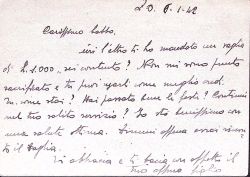 Z.D. 6.1-42
Carissimo babbo,
ieri l'altro ti ho mandato un vaglia
di £.1.000, sei contento? Non mi sono punto
sacrificato e ti puoi come meglio
Tu, come stai? Hai passato bene le feste? Continui
nel tuo solito servizio? Io sto benissimo con
una salute ottima. Scrivimi appena avrai
to il vaglia.
Ti abbraccia e ti bacia con affetto il
tuo aff.mo figlio